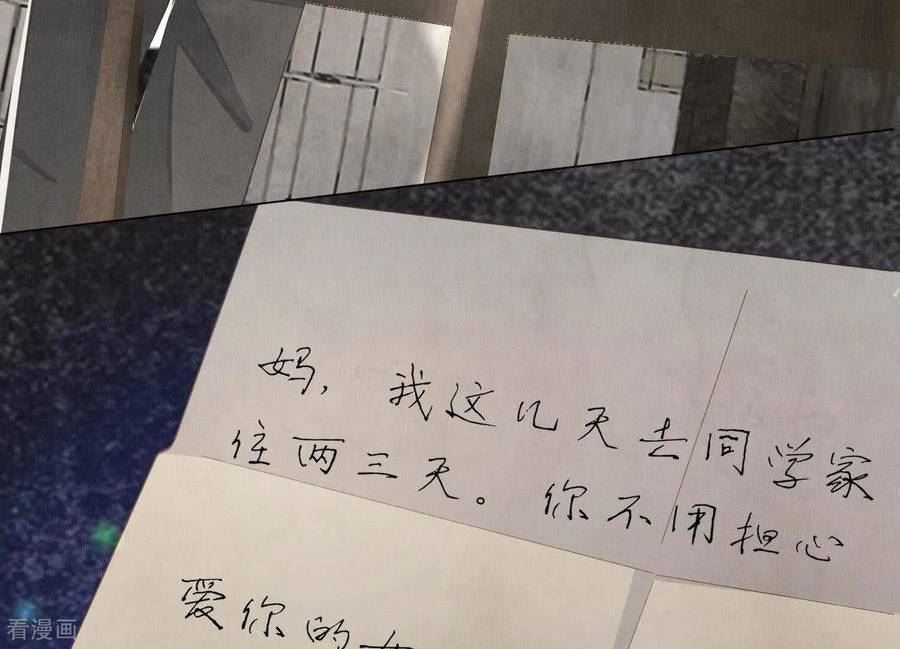 妈，我这几天去同学家
住两三天。你不用担心
爱你的
看漫画